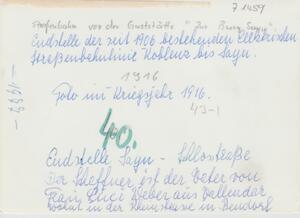 71459
Straßenbahn vor der Gaststätte "Zur Burg Sayn"
Endstelle der seit 1906 bestehenden elektrischen
Straßenbahnlinie Koblenz bis Sayn.
1916
Foto im Kriegsjahr 1916.
43-1
40.
Endstelle Sayn - Schlosstraße
Der Schaffner ist der Vater von
Frau Weber aus Vallendar
wohnt in der in Bendorf